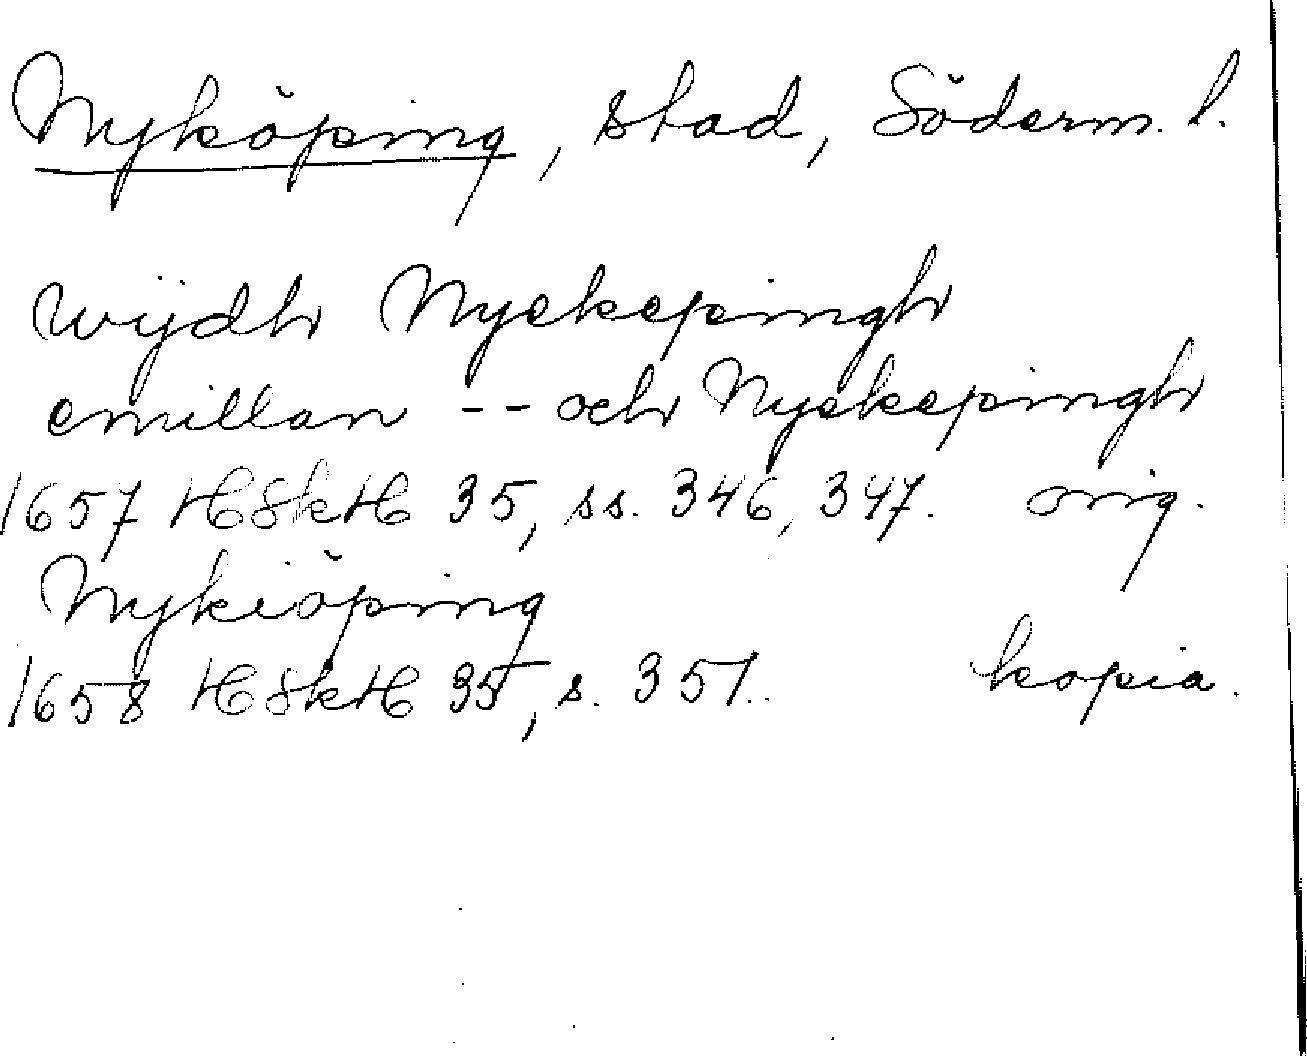 Nyköping, stad, Söderm. l.
wijdh Nyekepingh
emillan -- och Nyekepingh
1657 HSkH 35, ss. 346, 347. orig.
Nykiöping
1658 HSkH 35, s. 351. kopia.